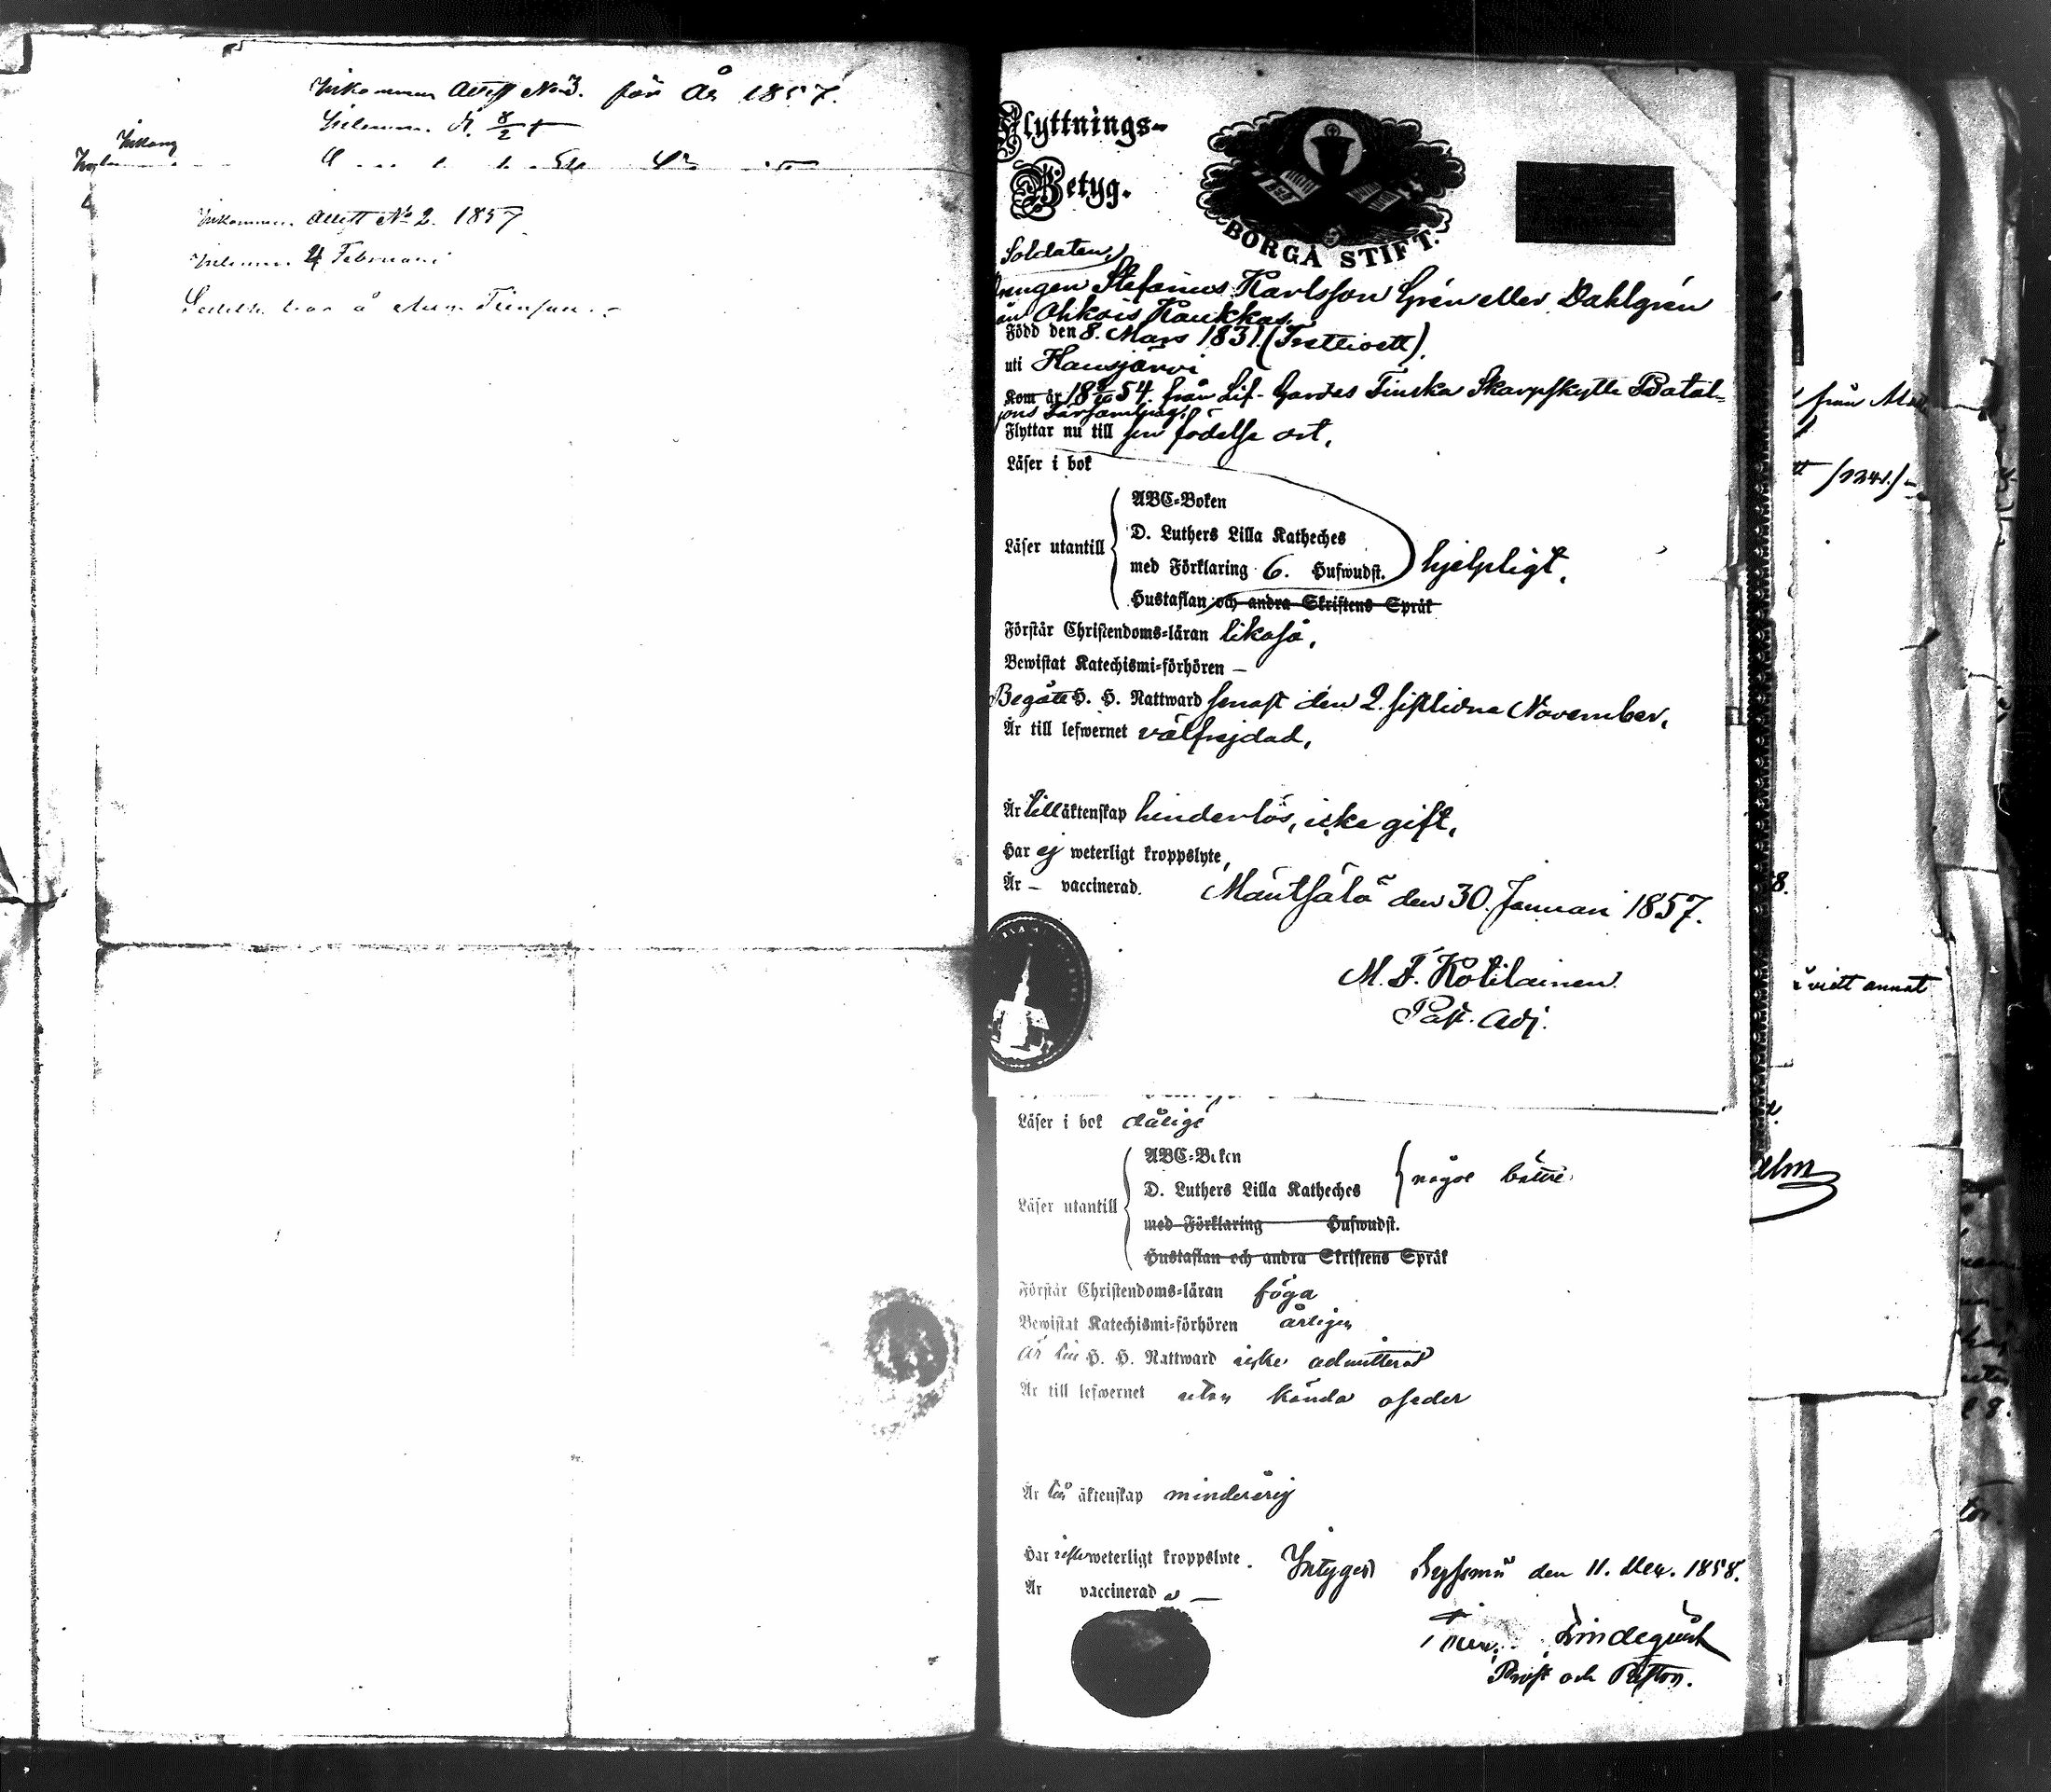 Inkommen Attest No 3. för År 1857.
Inkommen Attest No 2. 1857
Februari
Flyttnings-
Betyg.
BORGÅ STIFT.
Soldaten,
Drengen Stefanus Karlsson Grén eller Dahlgrén
Ohkois Kaukkas.
Född den 8. Mars 1831. (Trettioett).
uti Hausjärvi
Kom år 18 54. från Lif-Gardes Finska Skarpskytte Batal-
jons Församling.
Flyttar nu till sin födelse ort.
Läser i bok
ABC-Boken
D. Luthers Lilla Katheches
Läser utantill
med Förklaring 6. Hufwudst.
hjelpligt.
Hustaflan och andra Skriftens Språk
Förstår Christendoms-läran likaså.
Bewistat Katechismi-förhören —
Begått H. H. Nattward senast den 2. sistlidne November.
Är till lefwernet välfrejdad.
Är till äktenskap hinderlös, icke gift.
Har ej weterligt kroppslyte,
Är — vaccinerad.
Mäntsälä den 30. Januari 1857.
M. F. Kotilainen.
Past. Adj.
Läser i bok dåligt
ABC-Boken
D. Luthers Lilla Katheches
något bättre
Läser utantill
med Förklaring Hufwudst.
Hustaflan och andra Skriftens Språk
Förstår Christendoms-läran föga
Bewistat Katechismi-förhören årligen
är till H. H. Nattward icke admitterad
Är till lefwernet utan kända oseder
Är till äktenskap minderårig
Har icke weterligt kroppslyte.
Intygas den 11. 1858.
Är vaccinerad —
Lindequist
Prost och Pastor.
från
vidt annat